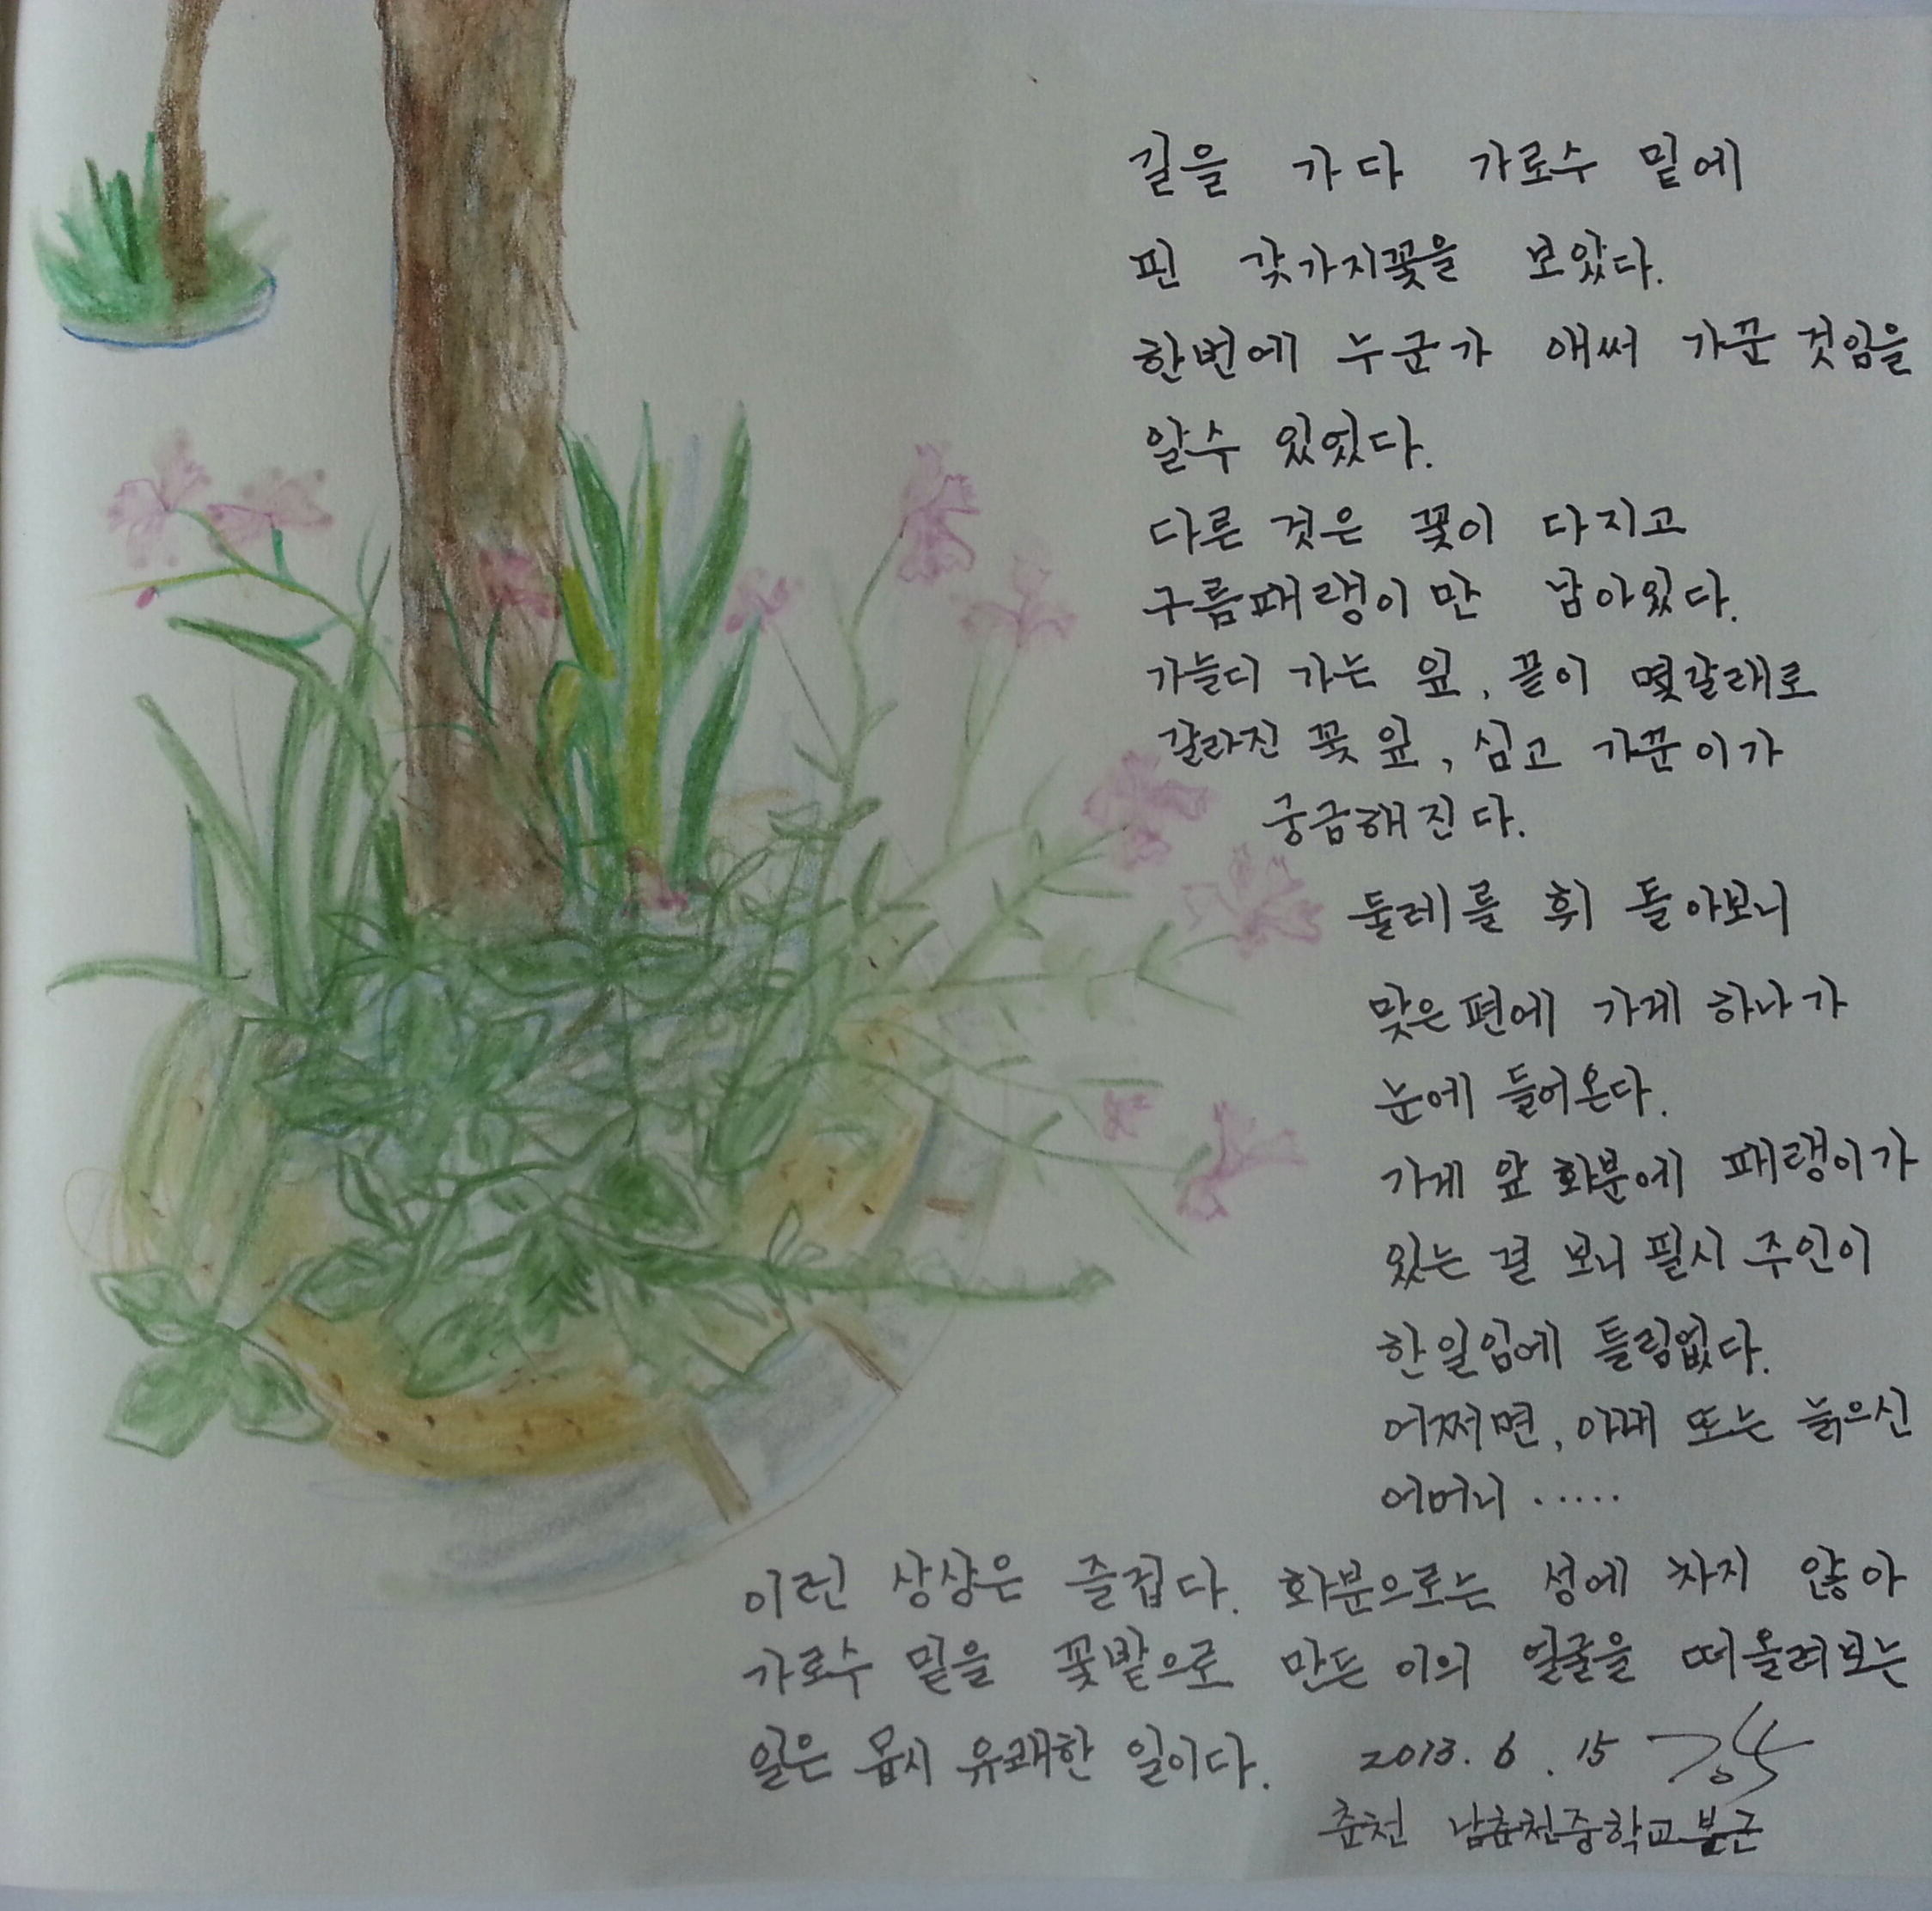 길을 가다 가로수 밑에
핀 갖가지꽃을 보았다.
한번에 누군가 애써 가꾼 것임을
알수 있었다.
다른 것은 꽃이 다지고
구름패랭이만 남아있다.
가늘디 가는 잎, 끝이 몇갈래로
갈라진 꽃잎, 심고 가꾼이가
궁금해진다.
둘레를 휘 돌아보니
맞은편에 가게 하나가
눈에 들어온다.
가게 앞 화분에 패랭이가
있는 걸 보니 필시 주인이
한일임에 틀림없다.
어쩌면, 아내 또는 늙으신
어머니 .....
이런 상상은 즐겁다. 화분으로는 성에 차지 않아
가로수 밑을 꽃밭으로 만든 이의 얼굴을 떠올려보는
일은 몹시 유쾌한 일이다. 2013. 6. 15
춘천 남춘천중학교부근